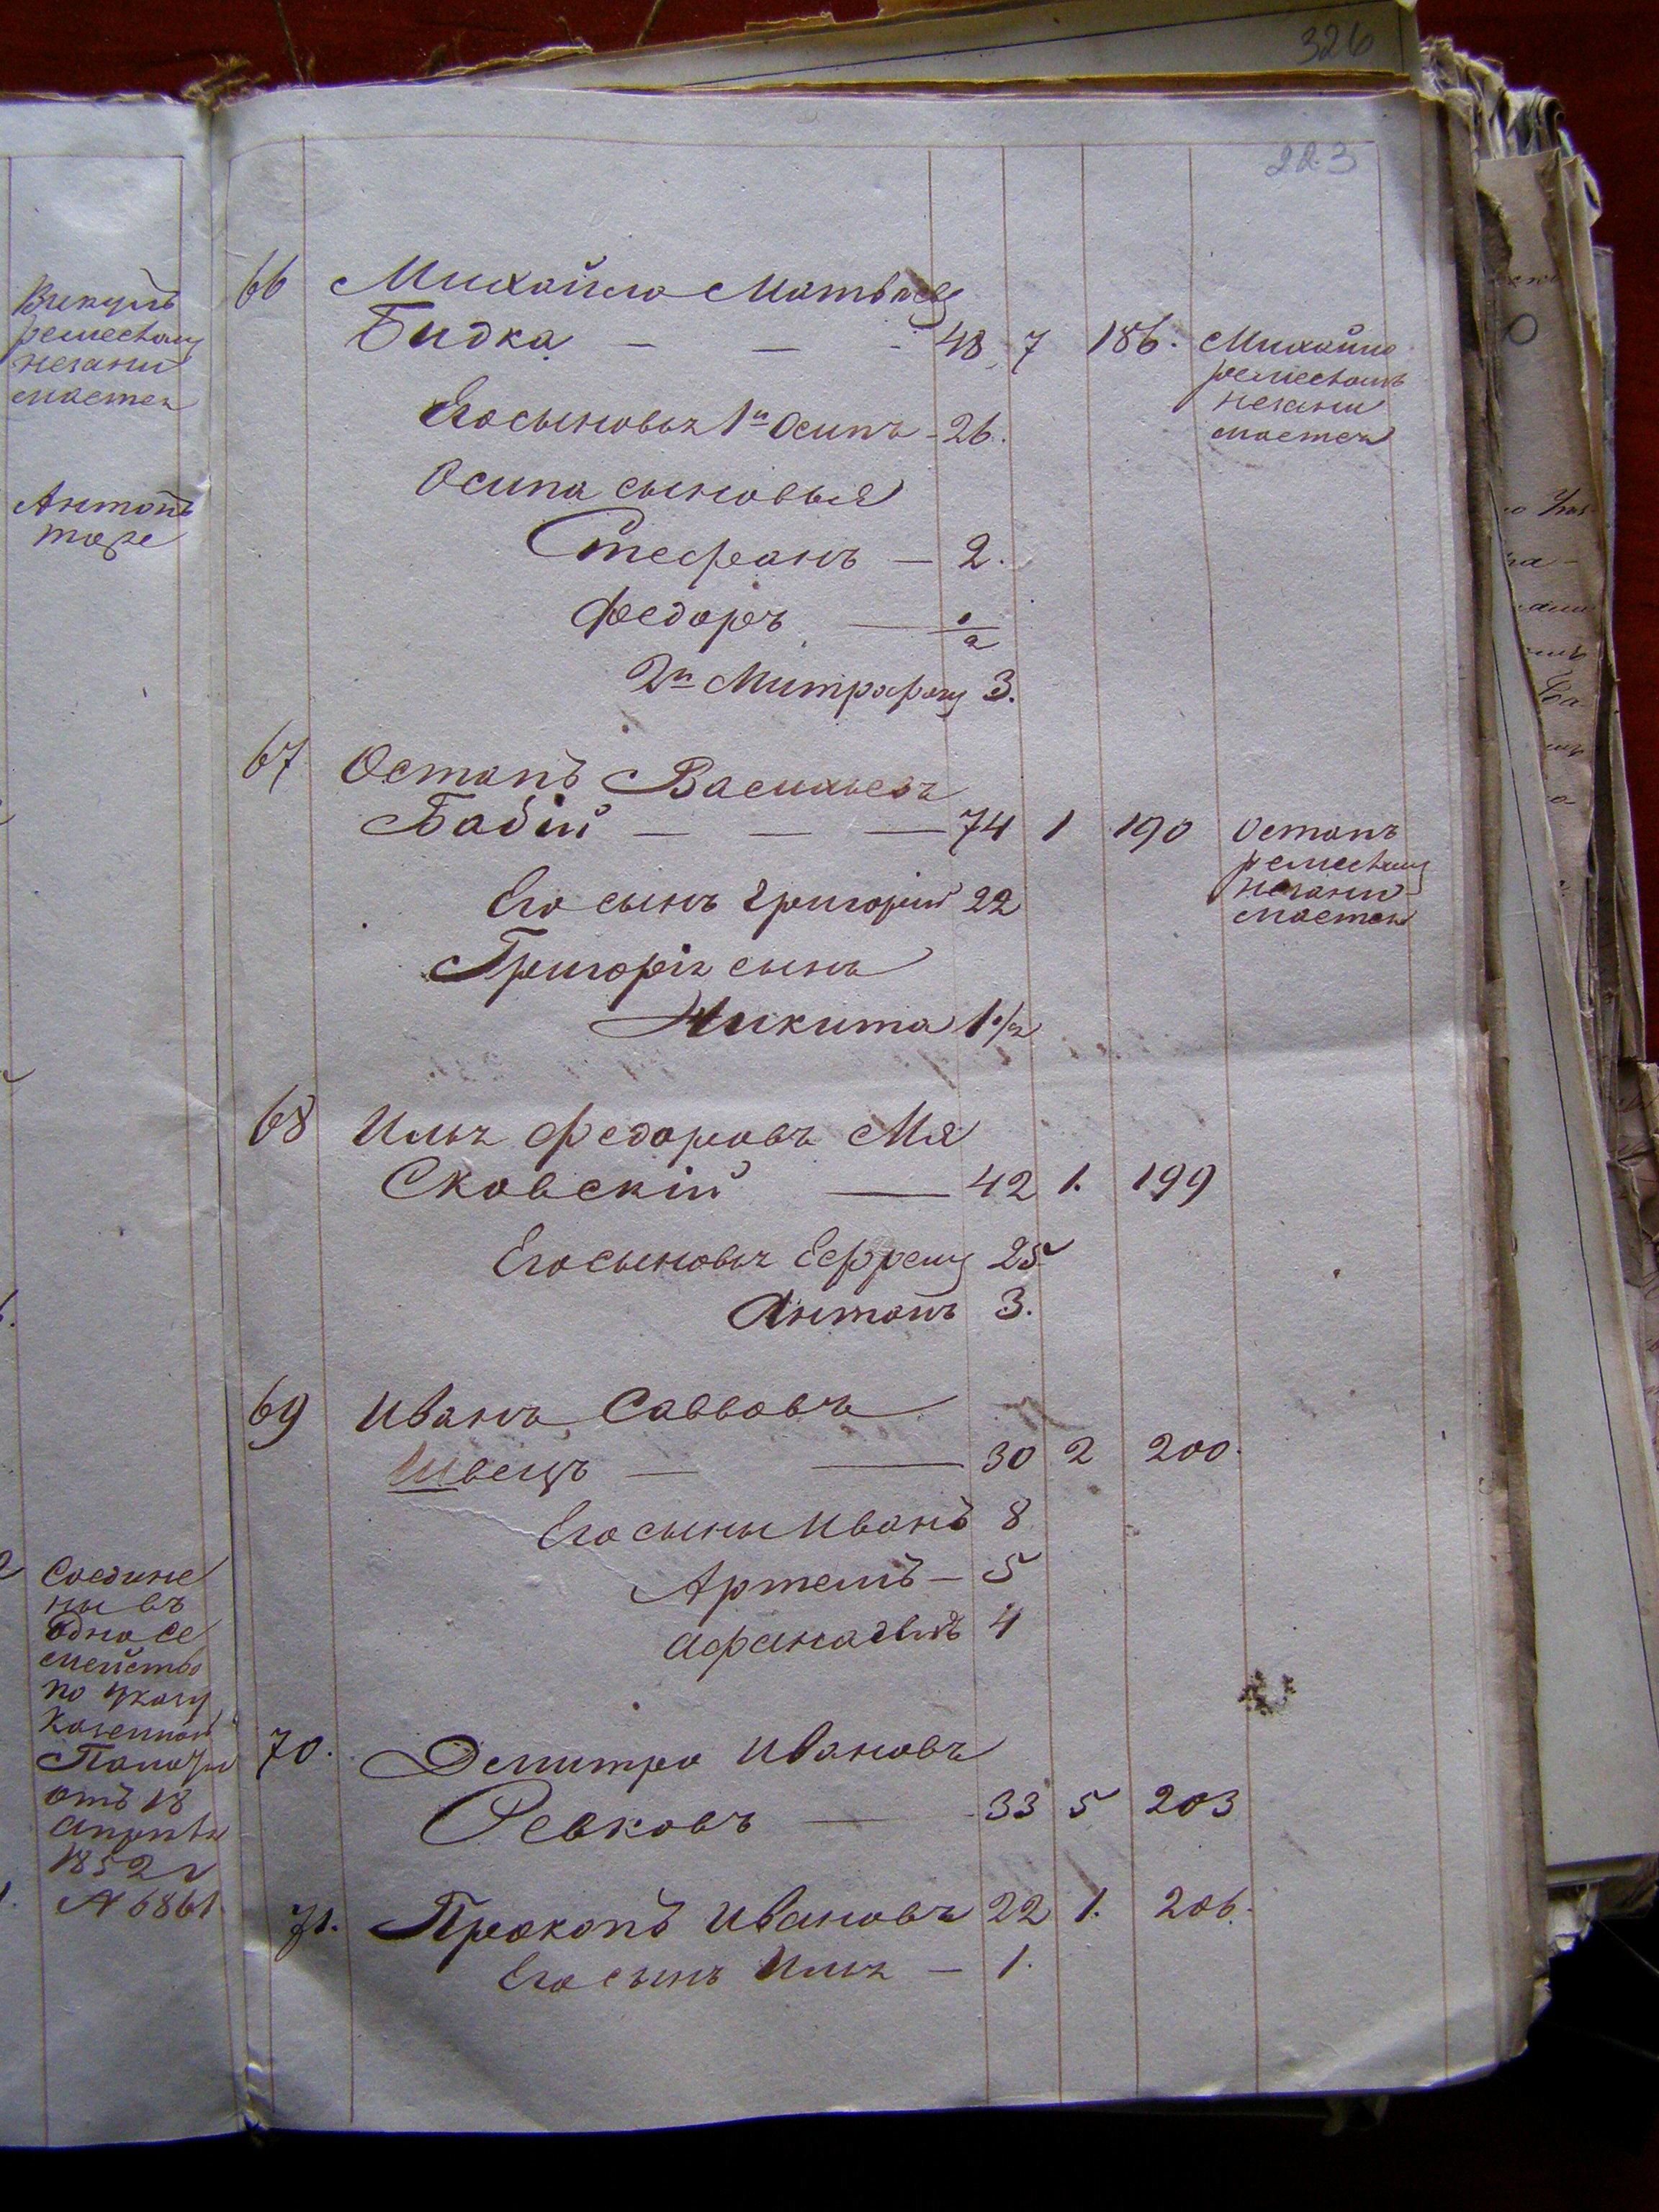 326
223
Викулъ
ремествомъ
незани
мается
Антонъ
тоже
Соедине
ны въ
одно се
мейство
по указу
Казенной
Палаты
отъ 18
апреля
1852 г
№ 6861
66 Михайло Матвѣевъ
Бидка — — - 48 7 186. Михайло
ремествомъ
незани
мается
Его сыновья 1й Осипъ - 26.
Осипа сыновья
Стефанъ — 2.
Федоръ — 1/2
2й Митрофанъ 3.
67 Остапъ Васильевъ
Бабій — — — 74 1 190 Остапъ
ремествомъ
незани
мается
Его сынъ Григорій 22
Григорія сынъ
Никита 1 1/2
68 Илья Федоровъ Мя
сковскій — 42 1. 199
Его сыновья Ефремъ 25
Антонъ 3.
69 Иванъ Савовъ
Швецъ — — 30 2 200.
Его сыны Иванъ 8
Артемъ — 5
Афанасій 4
70. Демитро Ивановъ
Ревковъ — 33 5 203
71. Прокопъ Ивановъ 22 1. 206.
Его сынъ Илья — 1.